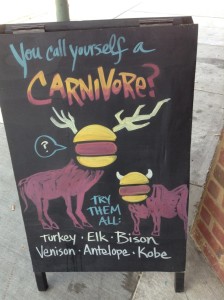 You call yourself a
CARNIVORE?
?
TRY
THEM
ALL:
Turkey · Elk · Bison
Venison · Antelope · Kobe